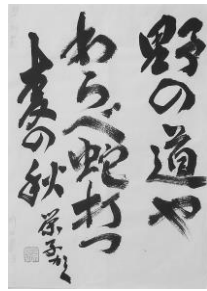 野の道や
わらべ蛇打つ
麦の秋